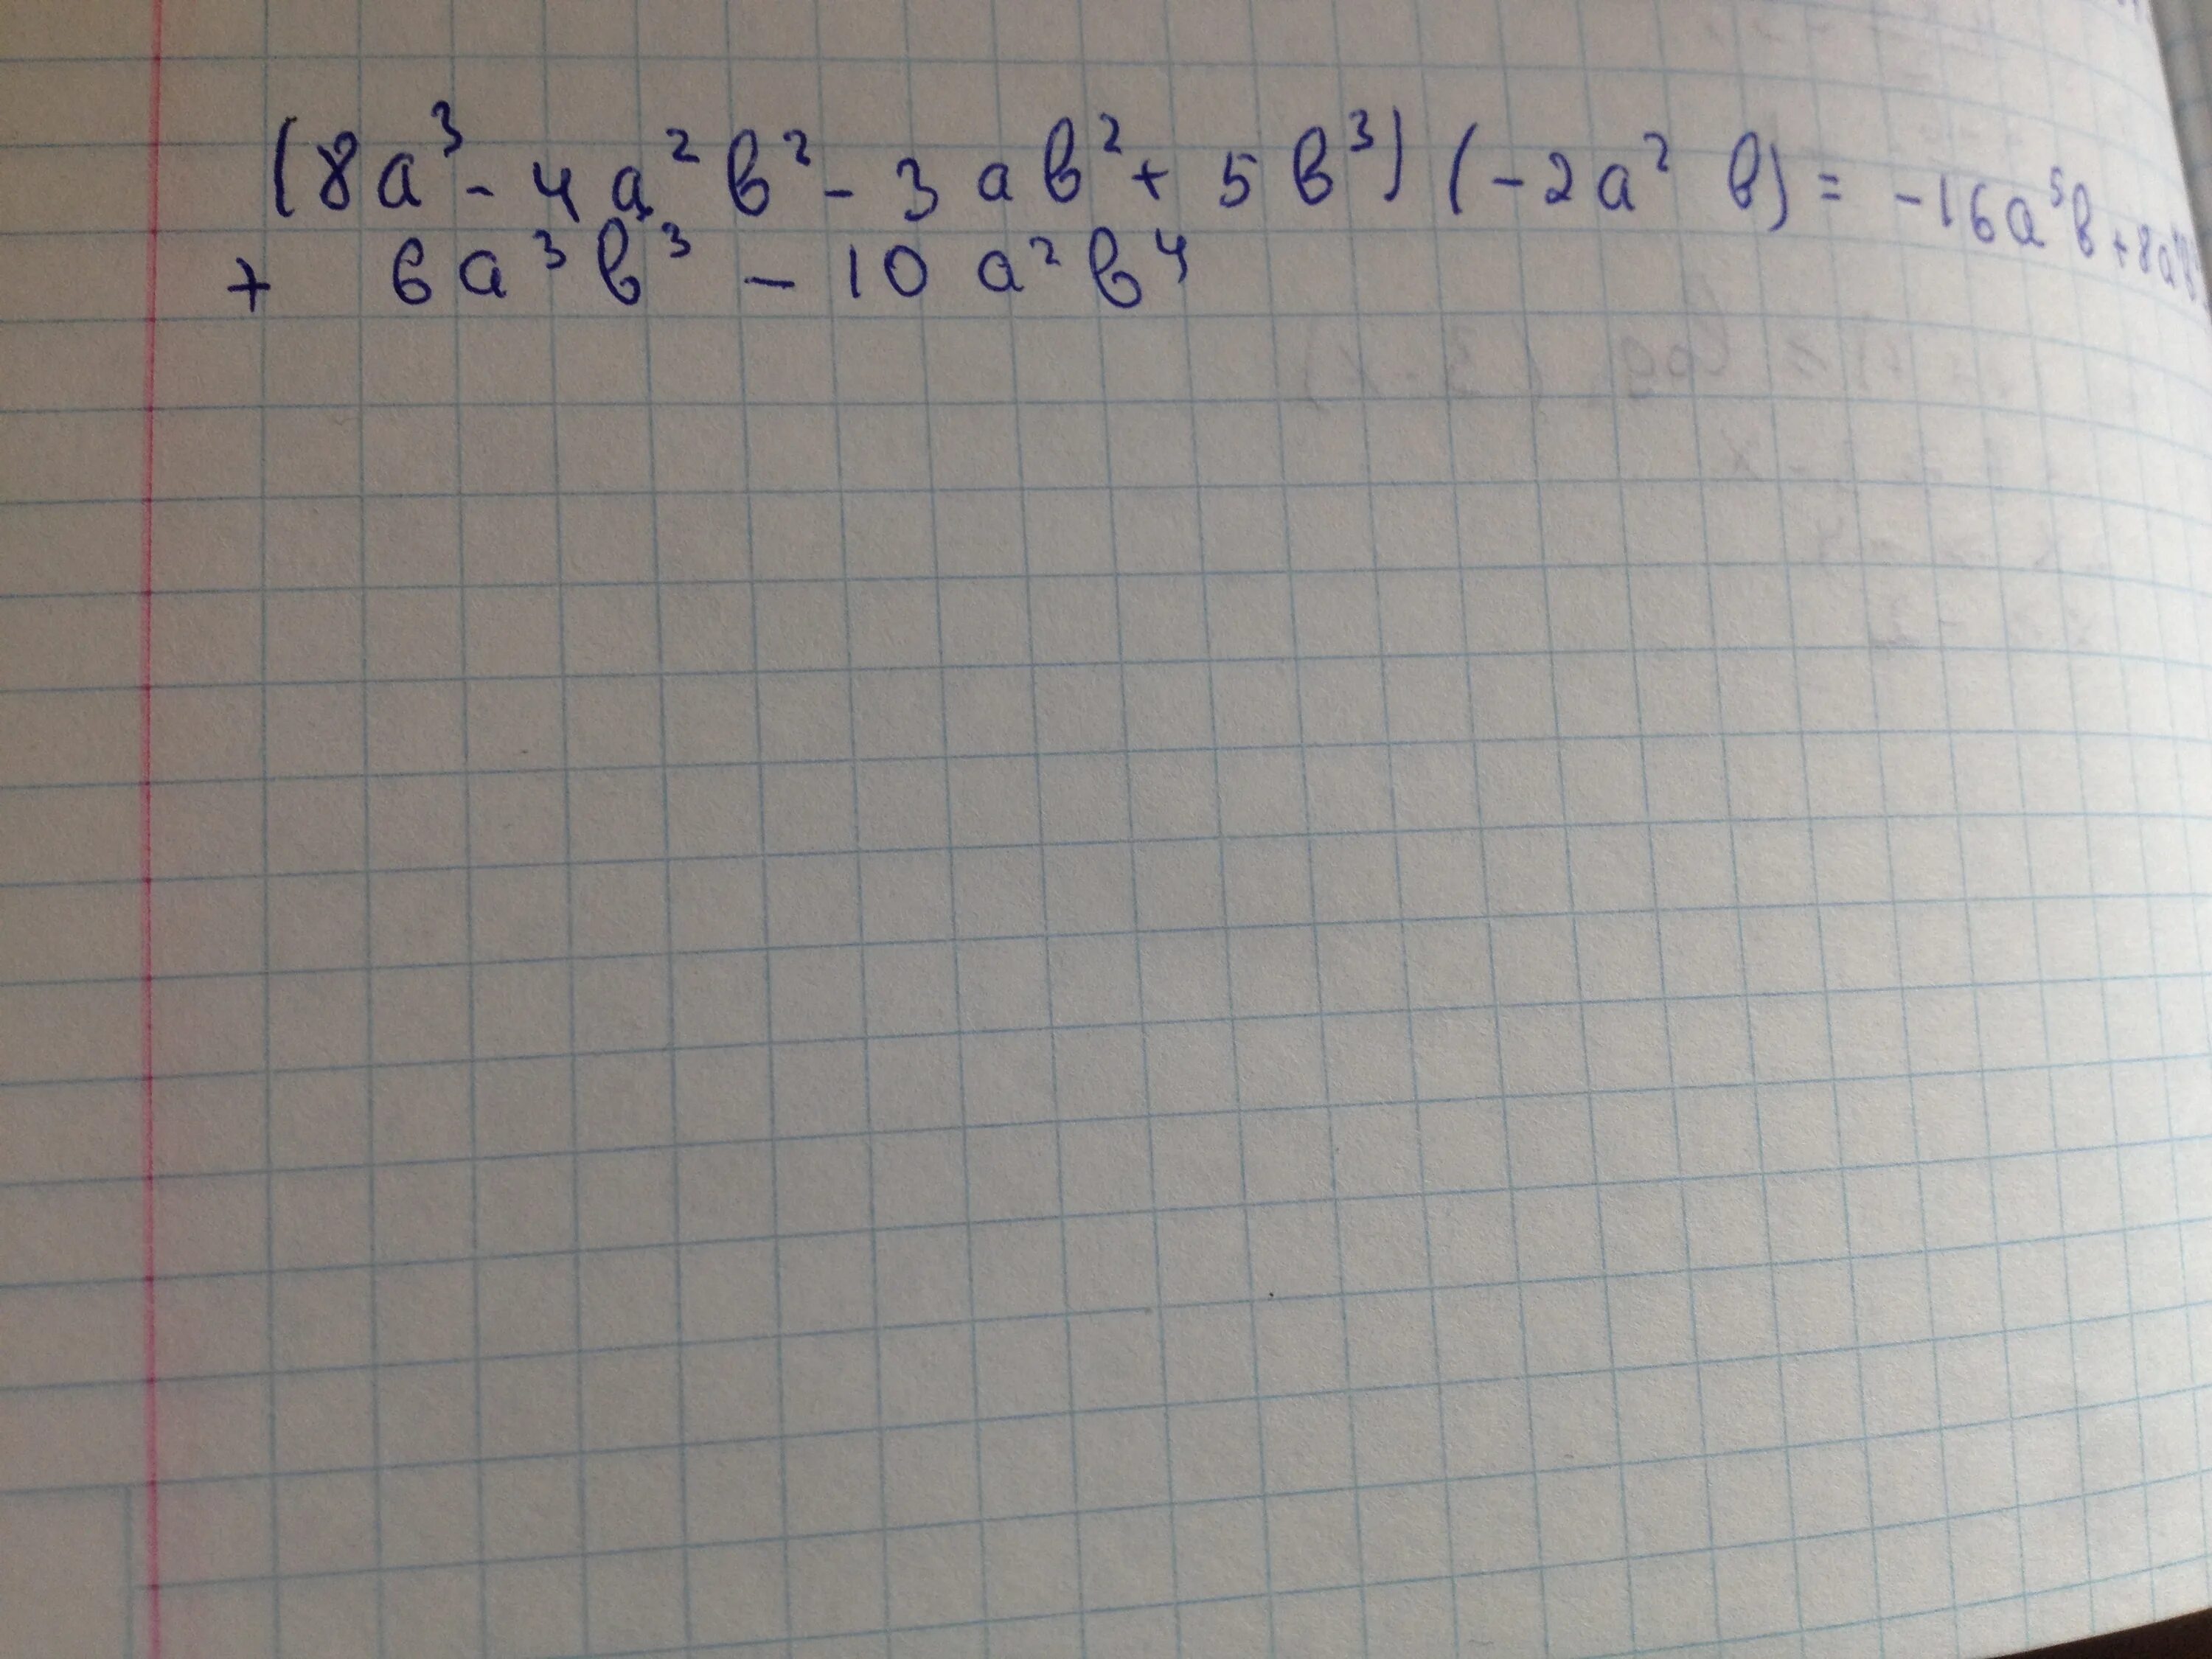 (8a³ - 4a²b² - 3ab² + 5b³)(-2a² b) = -16a⁵b + 8a⁴b³
+ 6a³b³ - 10a²b⁴